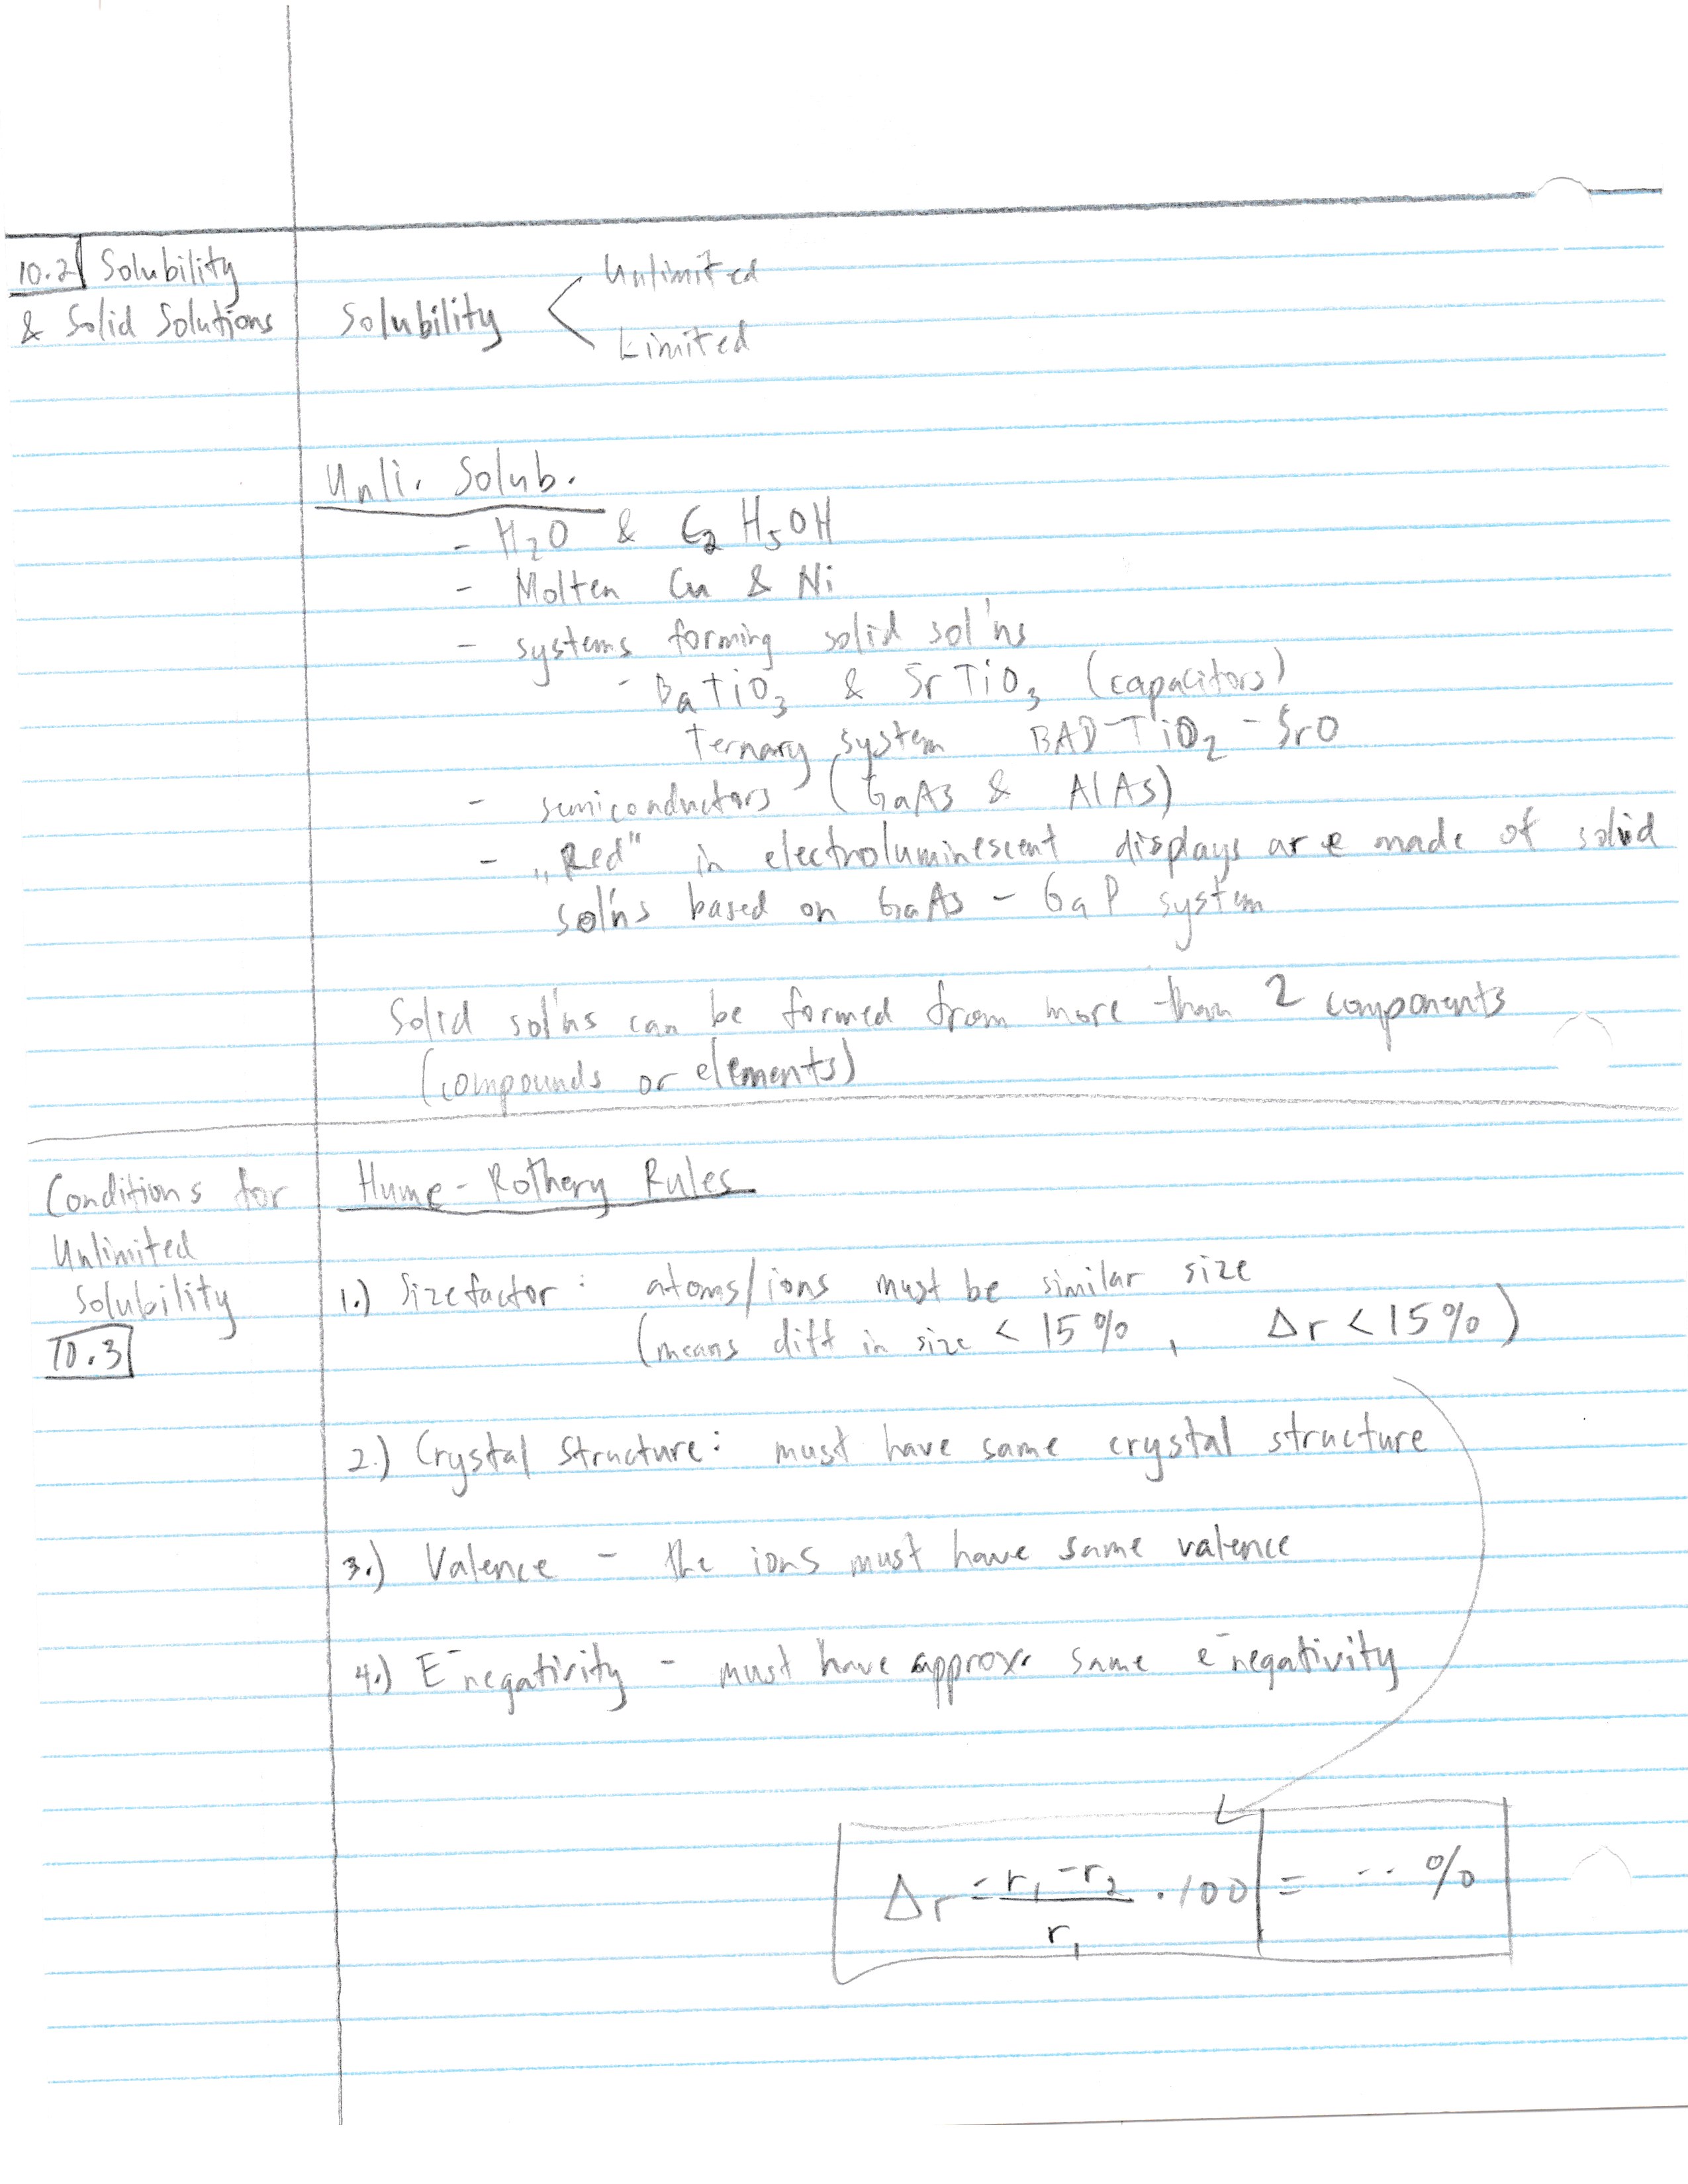 10.2 Solubility
& Solid Solutions
Solubility < Unlimited
Limited
Unli. Solub.
- H₂O & C₂H₅OH
- Molten Cu & Ni
- systems forming solid sol'ns
- BaTiO₃ & SrTiO₃ (capacitors)
Ternary system BAD-TiO₂-SrO
- semiconductors (GaAs & AlAs)
- „Red" in electroluminescent displays are made of solid
sol'ns based on GaAs - GaP system
Solid sol'ns can be formed from more than 2 components
(compounds or elements)
Conditions for
Unlimited
Solubility
10.3
Hume-Rothery Rules
1.) Sizefactor: atoms/ions must be similar size
(means diff in size < 15%, Δr < 15%)
2.) Crystal Structure: must have same crystal structure
3.) Valence - the ions must have same valence
4.) E⁻negativity - must have approx. same e⁻negativity
Δr = (r₁ - r₂)/r₁ · 100 = -- %